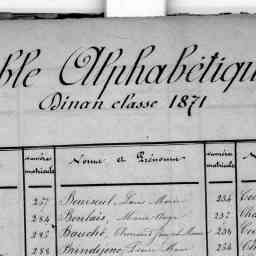 ble Alphabétiqu
Dinan classe 1871
numéros matricule Noms et Prénoms numéros matricule
257 Bourseul, Louis Marie 234 Cou
284 Boulais, Marie Ange 237 Cha
285 Bauché, 238 Cou
288 Louis Marie 254 Ch